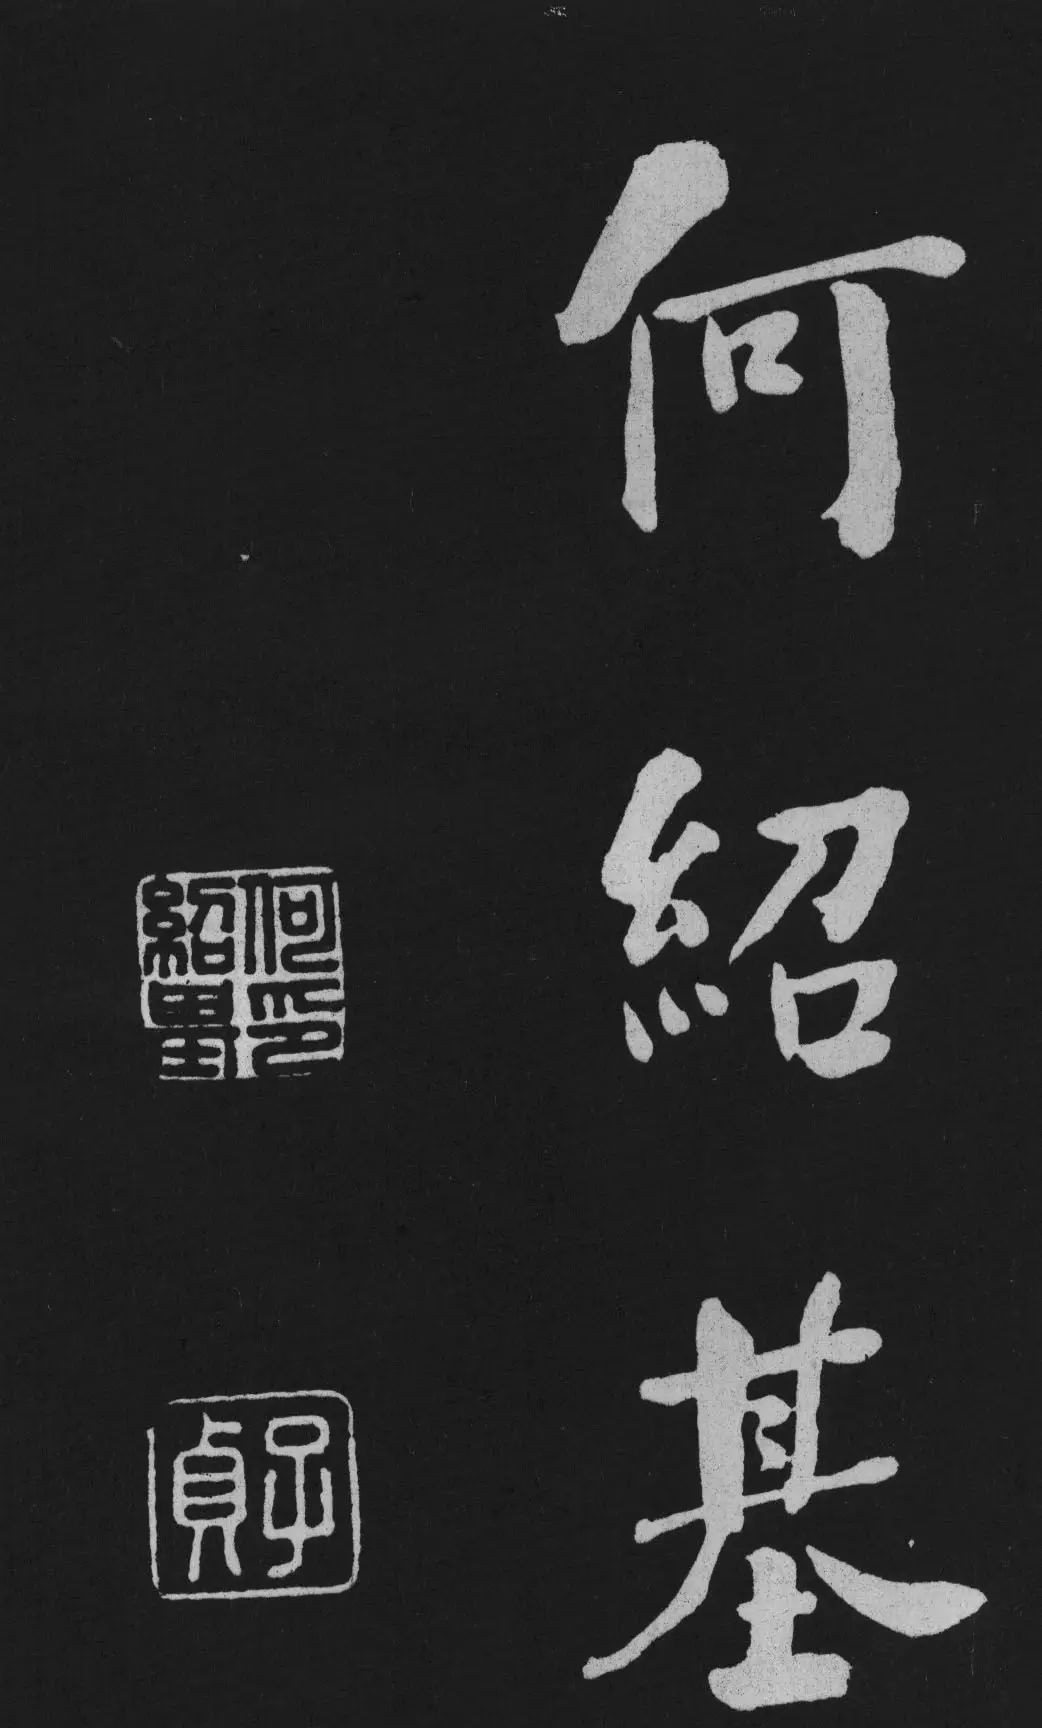 何紹基
何印紹基
子貞